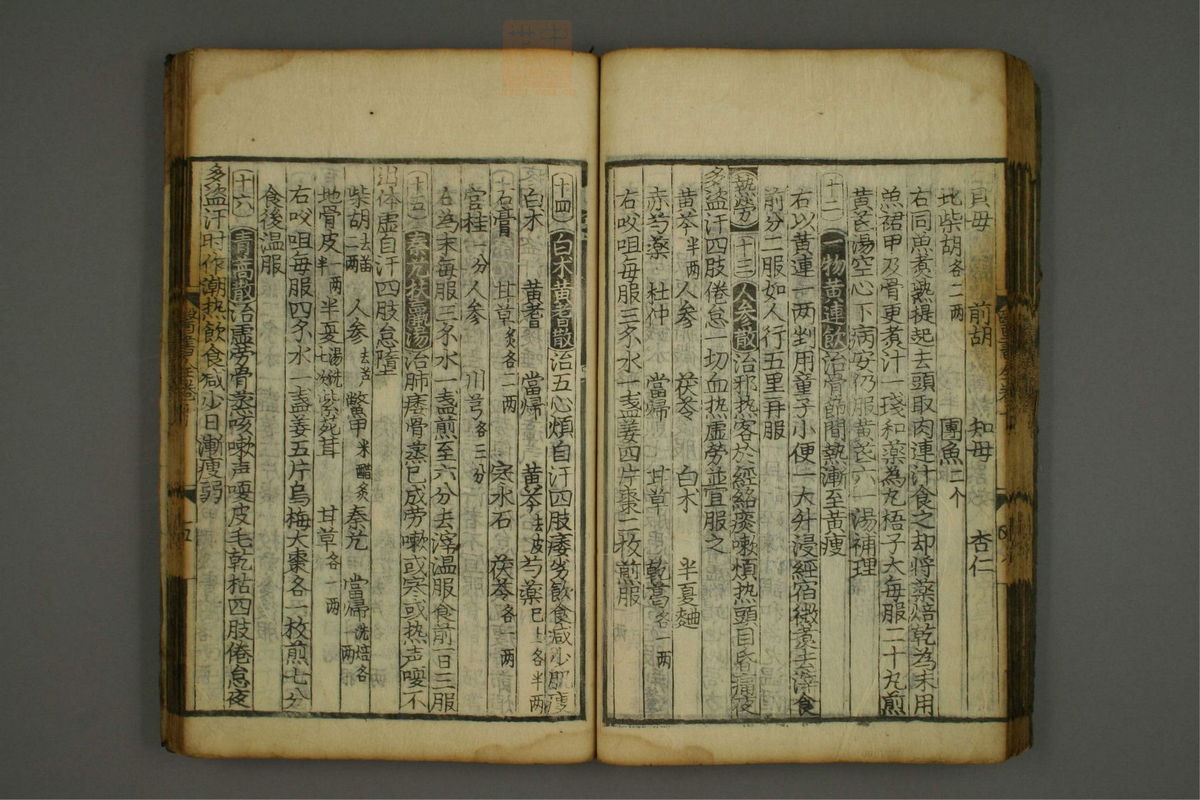 貝母 前胡 知母 杏仁
北柴胡各二两 團魚二个
右同魚煮熟提起去頭取肉連汁食之却將藥焙乾為末用
魚裙甲及骨更煮汁一琖和藥為丸梧子大每服二十丸煎
黃芪湯空心下病安仍服黃芪六一湯補理
十二 一物黃連飲治骨節間熱漸至黃瘦
右以黃連一两剉用童子小便一大升浸經宿微煮去滓食
前分二服如人行五里再服
热勞 十三 人参散治邪热客於經絡痰嗽煩热頭目昏痛夜
多盗汗四肢倦怠一切血热虛勞並宜服之
黃芩半两 人参 茯苓 白术 半夏麯
赤芍藥 杜仲 當帰 甘草 乾葛各一两
右㕮咀每服三㕮水一盞姜四片棗二枚煎服
十四 白术黃耆散治五心煩自汗四肢痿劣飲食减少肌瘦
白术 黃耆 當帰 黃芩去皮 芍藥已上各半两
石膏 甘草炙各二两 寒水石 茯苓各一两
官桂一分 人参 川芎各三分
右為末每服三㕮水一盞煎至六分去滓温服食前一日三服
十五 秦艽扶羸湯治肺痿骨蒸已成劳嗽或寒或热声嗄不
出体虛自汗四肢怠墮
柴胡去苗二两 人参去芦 鱉甲米醋炙 秦艽 當帰洗焙各一两
地骨皮半两 半夏湯洗七次 紫菀茸 甘草各一两
右㕮咀每服四㕮水一盞姜五片烏梅大棗各一枚煎七分
食後温服
十六 青蒿散治虛勞骨蒸咳嗽声嗄皮毛乾枯四肢倦怠夜
多盗汗时作潮热飲食减少日漸瘦弱